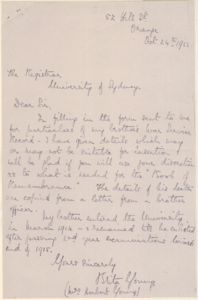 Orange
The Registrar
University of Sydney
Dear Sir,
In filling in the form sent to me
for particulars of my brothers War Service
Record - I have given details which may
or may not be suitable for insertion
will be glad if you will use your discretion
as to what is needed for the "Book of
Remembrance" The details of his death
are copied from a letter from a brother
officer.
My brother entered the University
in March 1914 - & remained till he enlisted
after passing 2nd year examinations
end of 1915.
Yours Sincerely
Rita Young